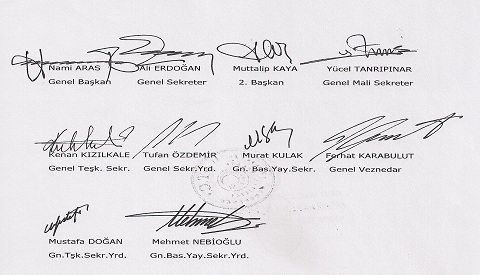 Nami ARAS Ali ERDOĞAN Muttalip KAYA Yücel TANRIPINAR
Genel Başkan Genel Sekreter 2. Başkan Genel Mali Sekreter
Kenan KIZILKALE Tufan ÖZDEMİR Murat KULAK Ferhat KARABULUT
Genel Teşk. Sekr. Genel Sekr.Yrd. Gn. Bas.Yay.Sekr. Genel Veznedar
Mustafa DOĞAN Mehmet NEBİOĞLU
Gn.Tşk.Sekr.Yrd. Gn.Bas.Yay.Sekr.Yrd.